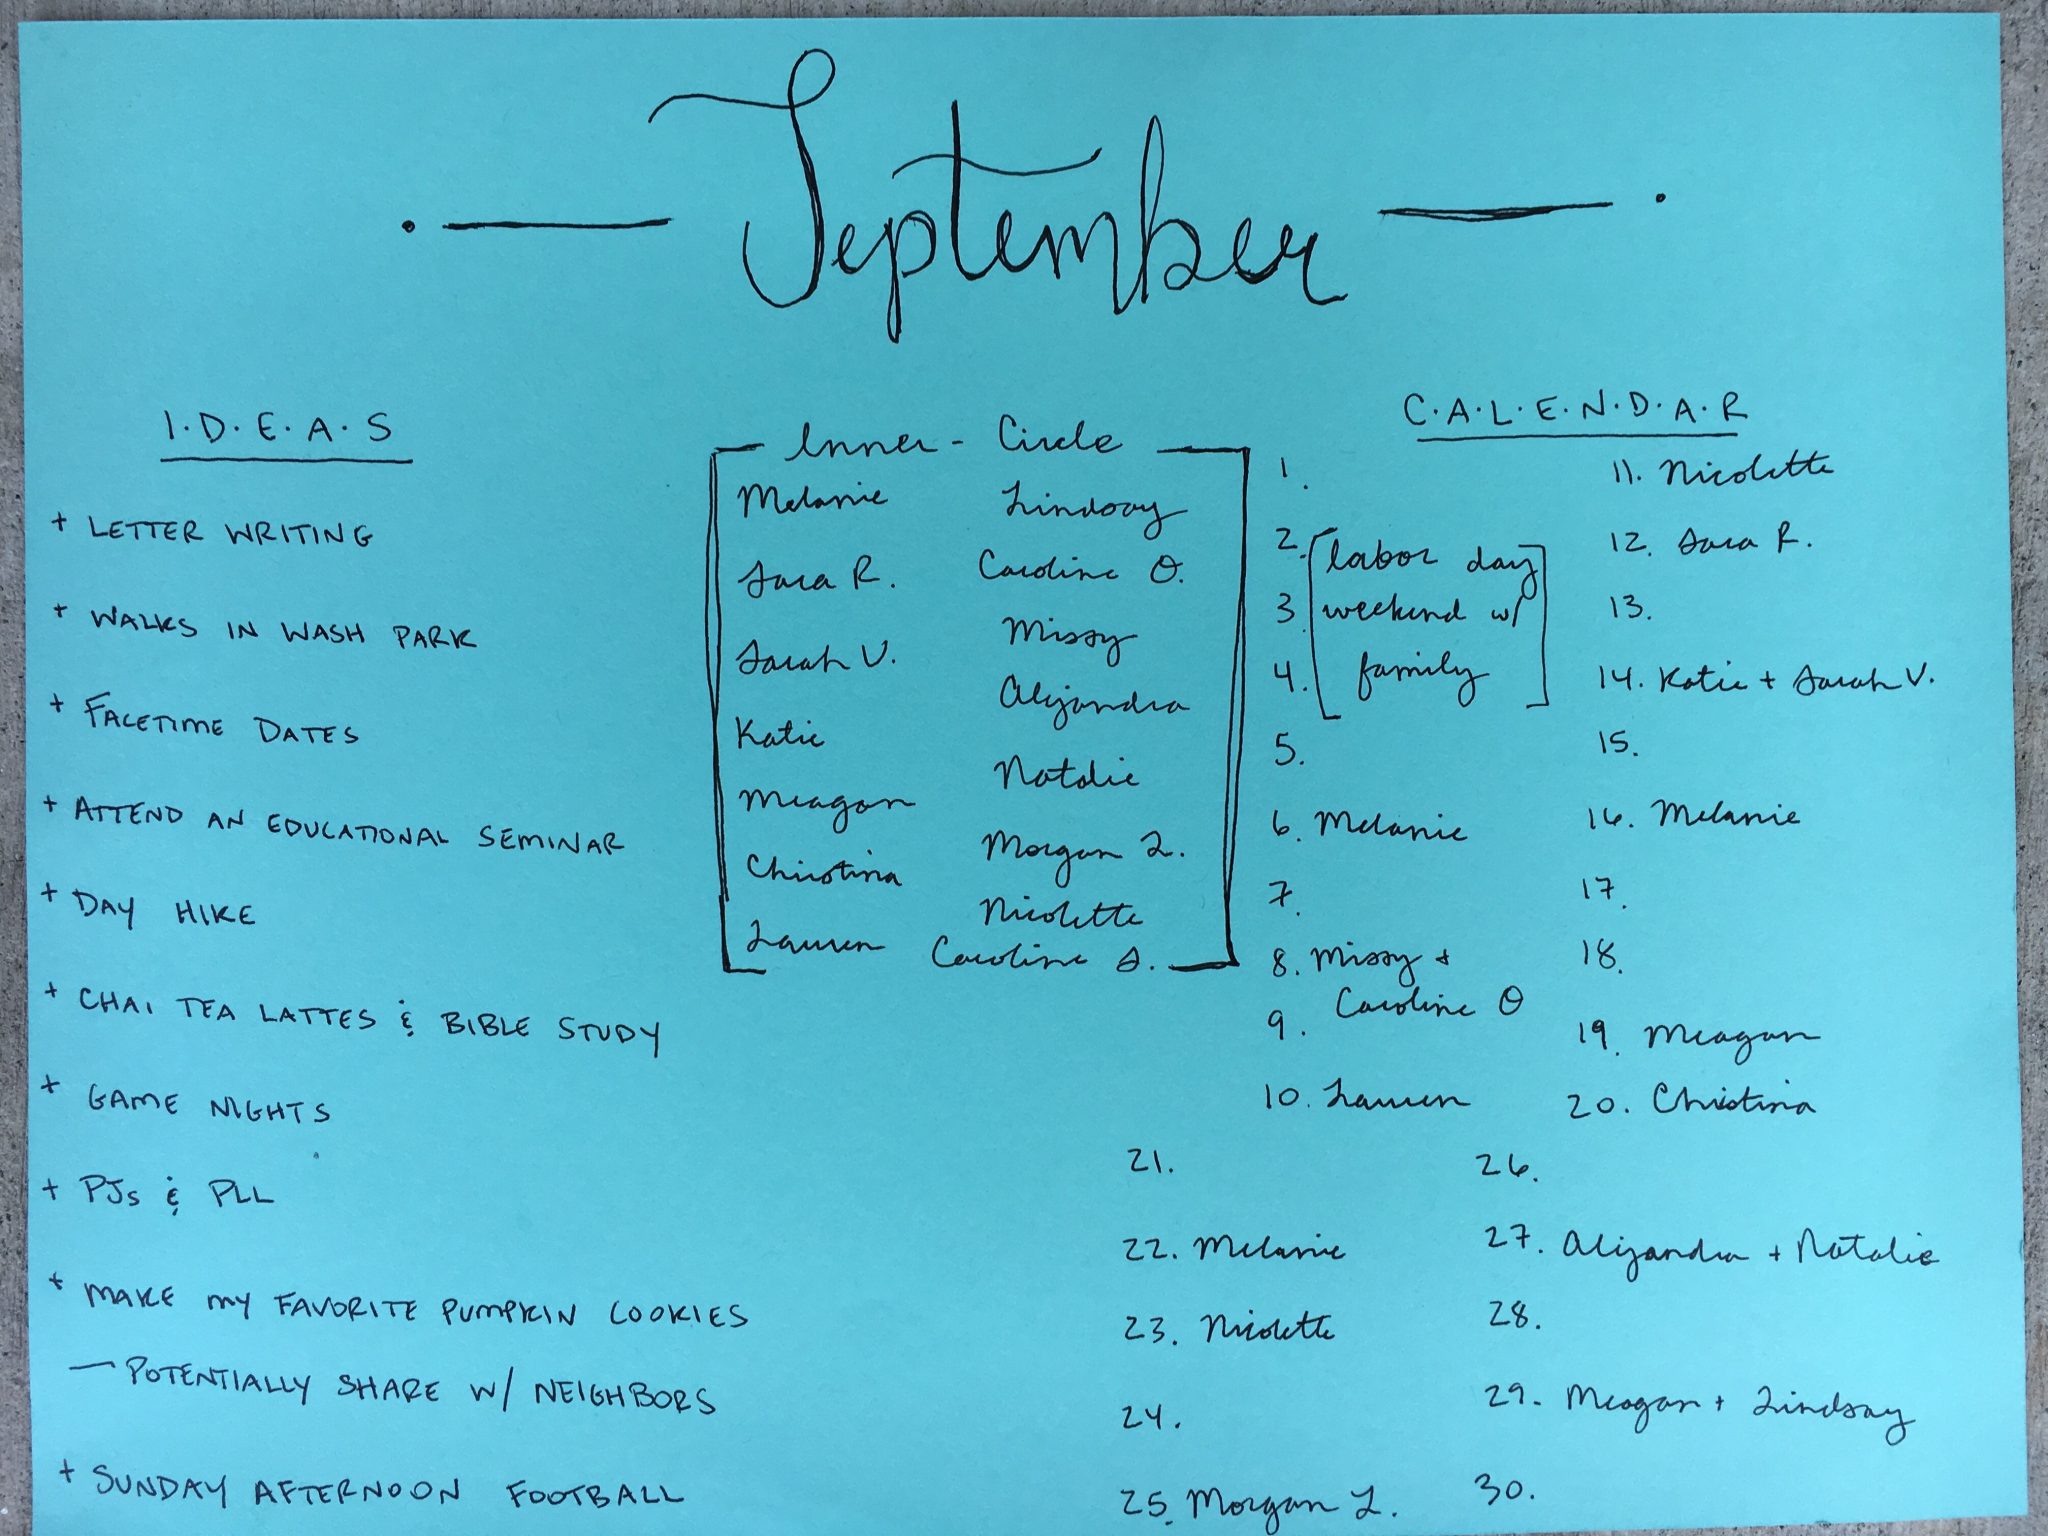 September
I.D.E.A.S
+ LETTER WRITING
+ WALKS IN WASH PARK
+ FACETIME DATES
+ ATTEND AN EDUCATIONAL SEMINAR
+ DAY HIKE
+ CHAI TEA LATTES & BIBLE STUDY
+ GAME NIGHTS
+ PJs & PLL
+ MAKE MY FAVORITE PUMPKIN COOKIES
— POTENTIALLY SHARE W/ NEIGHBORS
+ SUNDAY AFTERNOON FOOTBALL
Inner-Circle
Melanie
Sara R.
Sarah V.
Katie
Meagan
Christina
Lauren
Lindsay
Caroline O.
Missy
Alijandra
Natalie
Morgan L.
Nicolette
Caroline S.
C.A.L.E.N.D.A.R
1.
2. labor day
3. weekend w/
4. family
5.
6. Melanie
7.
8. Missy +
Caroline O
9.
10. Lauren
11. Nicolette
12. Sara R.
13.
14. Katie + Sarah V.
15.
16. Melanie
17.
18.
19. Meagan
20. Christina
21.
22. Melanie
23. Nicolette
24.
25. Morgan L.
26.
27. Alijandra + Natalie
28.
29. Meagan + Lindsay
30.